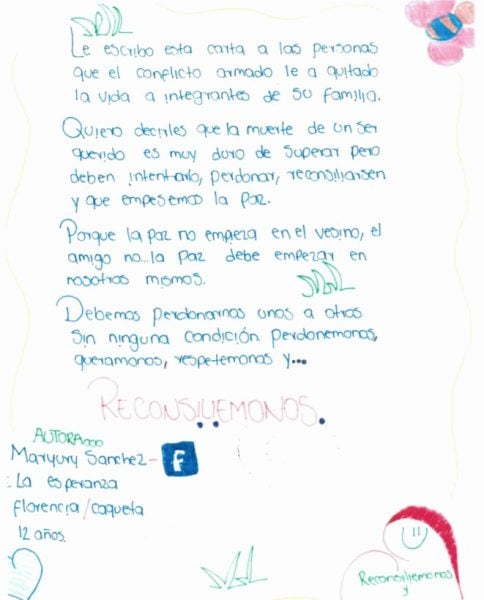 Le escribo esta carta a las personas
que el conflicto armado le a quitado
la vida a integrantes de su familia.
Quiero decirles que la muerte de un ser
querido es muy duro de superar pero
deben intentarlo, perdonar, reconsiliarsen
y que empesemos la paz.
Porque la paz no empieza en el vesino, el
amigo no...la paz debe empezar en
nosotros mismos.
Debemos perdonarnos unos a otros
sin ninguna condición perdonemonos,
queramonos, respetemonos y...
RECONSILIEMONOS.
AUTORA...
Maryury Sanchez - f
: La esperanza
florencia/caqueta
12 años.
Reconsiliemonos
y